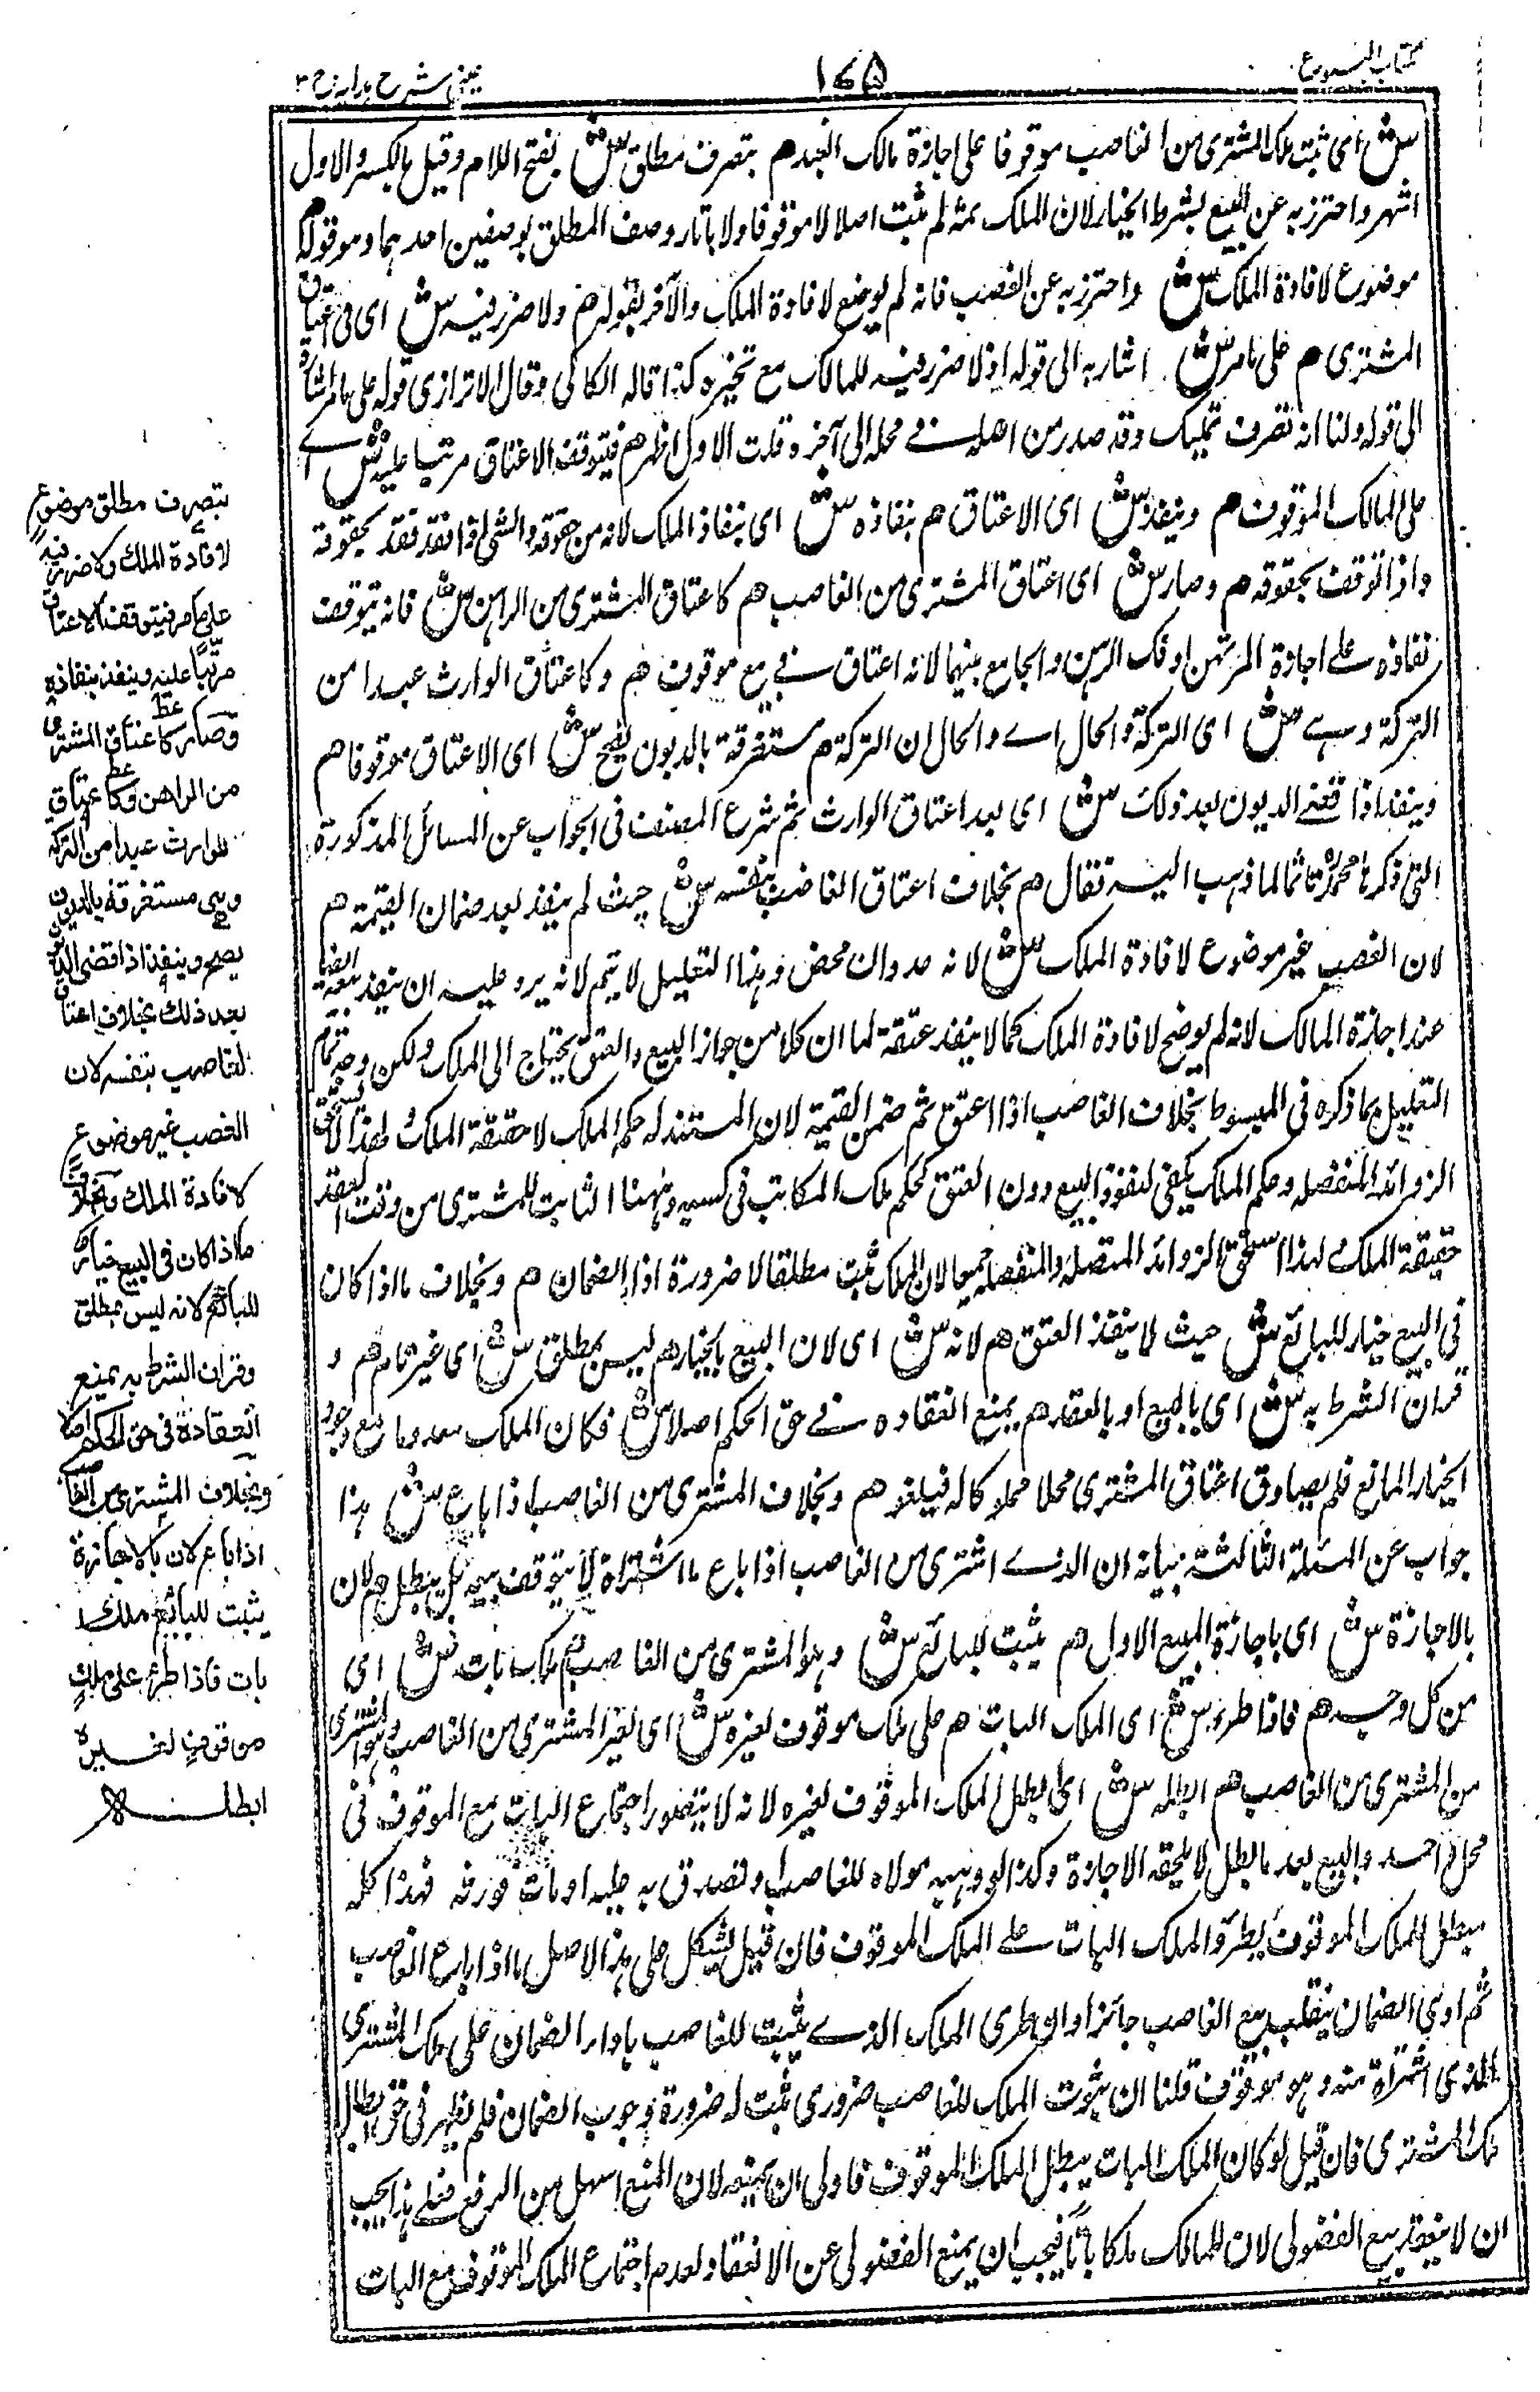 كتاب البيوع
١٦٥
عينى شرح هدايه ج ٣
ش اى ثبت ملك المشترى من الغاصب موقوفا على اجازة مالك العبد م بتصرف مطلق ش بفتح اللام وقيل بالكسر والاول
اشهر واحترز به عن البيع بشرط الخيار لان الملك ثمه لم يثبت اصلا لا موقوفا ولا باتا روصف المطلق بوصفين احدهما وهو قوله م
موضوع لافادة الملك ش واحترز به عن الغصب فانه لم يوضع لافادة الملك والآخر بقوله م ولا ضرر فيه ش اى فى اعتاق
المشترى م على ما مر ش اشار به الى قوله اذ لا ضرر فيه للمالك مع تخيره كذا قاله الكاكى وقال الاترازى قوله على ما مر اشارة
الى قوله ولنا انه تصرف تمليك وقد صدر من اهله فى محله الى آخره وقلت الاول اظهر م فيتوقف الاعتاق مرتبا عليه ش اے
على المالك الموقوف م وينفذ ش اى الاعتاق م بنفاذه ش اى بنفاذ الملك لانه من حقوقه والشئ اذا نفذ نفذ بحقوقه
واذا توقف بحقوقه م وصار ش اى اعتاق المشترى من الغاصب م كاعتاق المشترى من الراهن ش فانه يتوقف
نفاذه على اجازة المرتهن او فك الرهن والجامع بينهما لانه اعتاق فى بيع موقوف م وكاعتاق الوارث عبدا من
التركة وهے ش اى التركة والحال اے والحال ان التركة م مستغرقة بالديون يصح ش اى الاعتاق موقوفا م
وينفذ اذا قضى الديون بعد ذلك ش اى بعد اعتاق الوارث ثم شرع المصنف فى الجواب عن المسائل المذكورة
التى ذكرها محمدؒ تائما لما ذهب اليه فقال م بخلاف اعتاق الغاصب بنفسه ش حيث لم ينفذ بعد ضمان القيمة م
لان الغصب غير موضوع لافادة الملك ش لانه عدوان محض وهذا التعليل لا يتم لانه يرد عليه ان ينفذ بيعه ايضا
عند اجازة المالك لانه لم يوضع لافادة الملك كما لا ينفذ عتقه لما ان كلا من جواز البيع والعتق يحتاج الى الملك ولكن وجه تمام
التعليل بما ذكره فى المبسوط بخلاف الغاصب اذا اعتق ثم ضمن القيمة لان المستند له حكم الملك لا حقيقة الملك ولهذا لا يستحق
الزوائد المنفصلة وحكم الملك يكفى لنفوذ البيع دون العتق كحكم ملك المكاتب فى كسبه وههنا الثابت للمشترى من وقت العقد
حقيقة الملك ولهذا استحق الزوائد المتصله والمنفصله جميعا لان الملك ثبت مطلقا لا ضرورة اداء الضمان م وبخلاف ما اذا كان
فى البيع خيار للبائع ش حيث لا ينفذ العتق م لانه ش اى لان البيع بالخيار م ليس بمطلق ش اى غير تام م و
قران الشرط به ش اى بالبيع او بالعقد م يمنع انعقاده فى حق الحكم اصلا ش فكان الملك معدوما مع وجود
الخيار المانع فلم يصادق اعتاق المشترى محلا مملوكا له فيلغو م وبخلاف المشترى من الغاصب اذا باع ش هذا
جواب عن المسئلة الثالثة بيانه ان الذے اشترى من الغاصب اذا باع ما اشتراه لا يتوقف بيعه بل يبطل م لان
بالاجازة ش اى باجازة البيع الاول م يثبت للبائع ش وهو المشترى من الغاصب م ملك بات ش اى
من كل وجه م فاذا طرء ش اى الملك البات م على ملك موقوف لغيره ش اى لغير المشترى من الغاصب وهو المشترى
من المشترى من الغاصب م ابطله ش اى ابطل الملك الموقوف لغيره لانه لا يتصور اجتماع البات مع الموقوف فى
محل واحد والبيع بعد ما بطل لا يلحقه الاجازة وكذا لو وهبه مولاه للغاصب او تصدق به عليه او مات فورثه فهذا كله
يبطل الملك الموقوف بطروّ الملك البات على الملك الموقوف فان قيل يشكل على هذا الاصل ما اذا باع الغاصب
ثم ادى الضمان ينقلب بيع الغاصب جائزا وان طرى الملك الذے يثبت للغاصب باداء الضمان على ملك المشترى
الذى اشتراه منه وهو موقوف قلنا ان ثبوت الملك للغاصب ضرورى ثبت له ضرورة وجوب الضمان فلم يظهر فى حق ابطال
ملك المشترى فان قيل لو كان الملك البات يبطل الملك الموقوف فاولى ان يمنعه لان المنع اسهل من الرفع فعلى هذا يجب
ان لا ينعقد بيع الفضولى لان للمالك ملكا باتا فيجب ان يمنع الفضولى عن الانعقاد لعدم اجتماع الملك الموقوف مع البات
بتصرف مطلق موضوع
لافادة الملك ولا ضرر فيه
على ما مر فيتوقف الاعتاق
مرتّبا عليه وينفذ بنفاذه
وصار كاعتاق المشترى
من الراهن وكاعتاق
الوارث عبدا من التركة
وهى مستغرقة بالديون
يصح وينفذ اذا قضى الديون
بعد ذلك بخلاف اعتاق
الغاصب بنفسه لان
الغصب غير موضوع
لافادة الملك وبخلاف
ما اذا كان فى البيع خيار
للبائع لانه ليس بمطلق
وقران الشرط به يمنع
انعقاده فى حق الحكم اصلا
وبخلاف المشترى من الغاصب
اذا باع لان بالاجازة
يثبت للبائع ملك
بات فاذا طرء على ملك
موقوف لغيره
ابطله